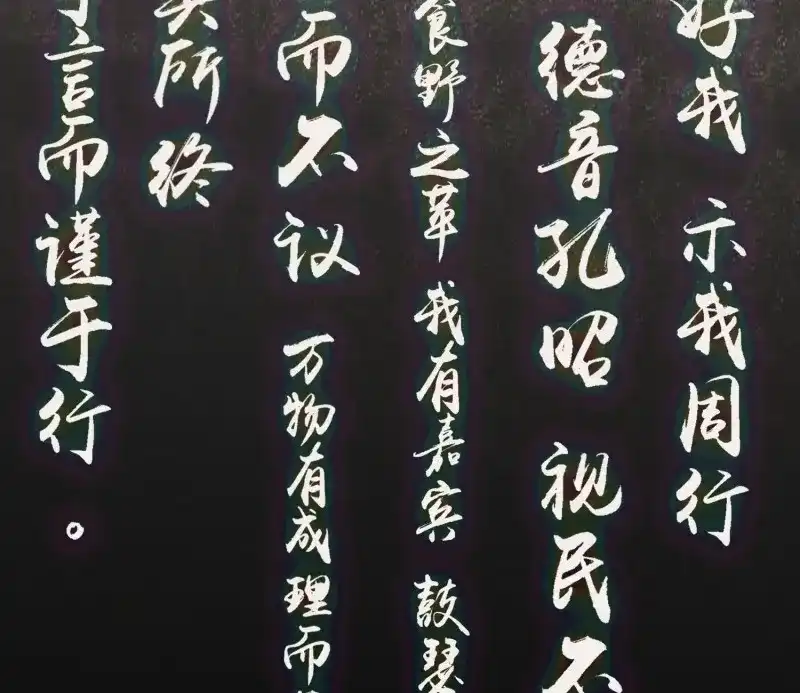 好我 示我周行
德音孔昭 视民不
食野之苹 我有嘉宾 鼓瑟
而不议 万物有成理而
所终
言而谨于行。